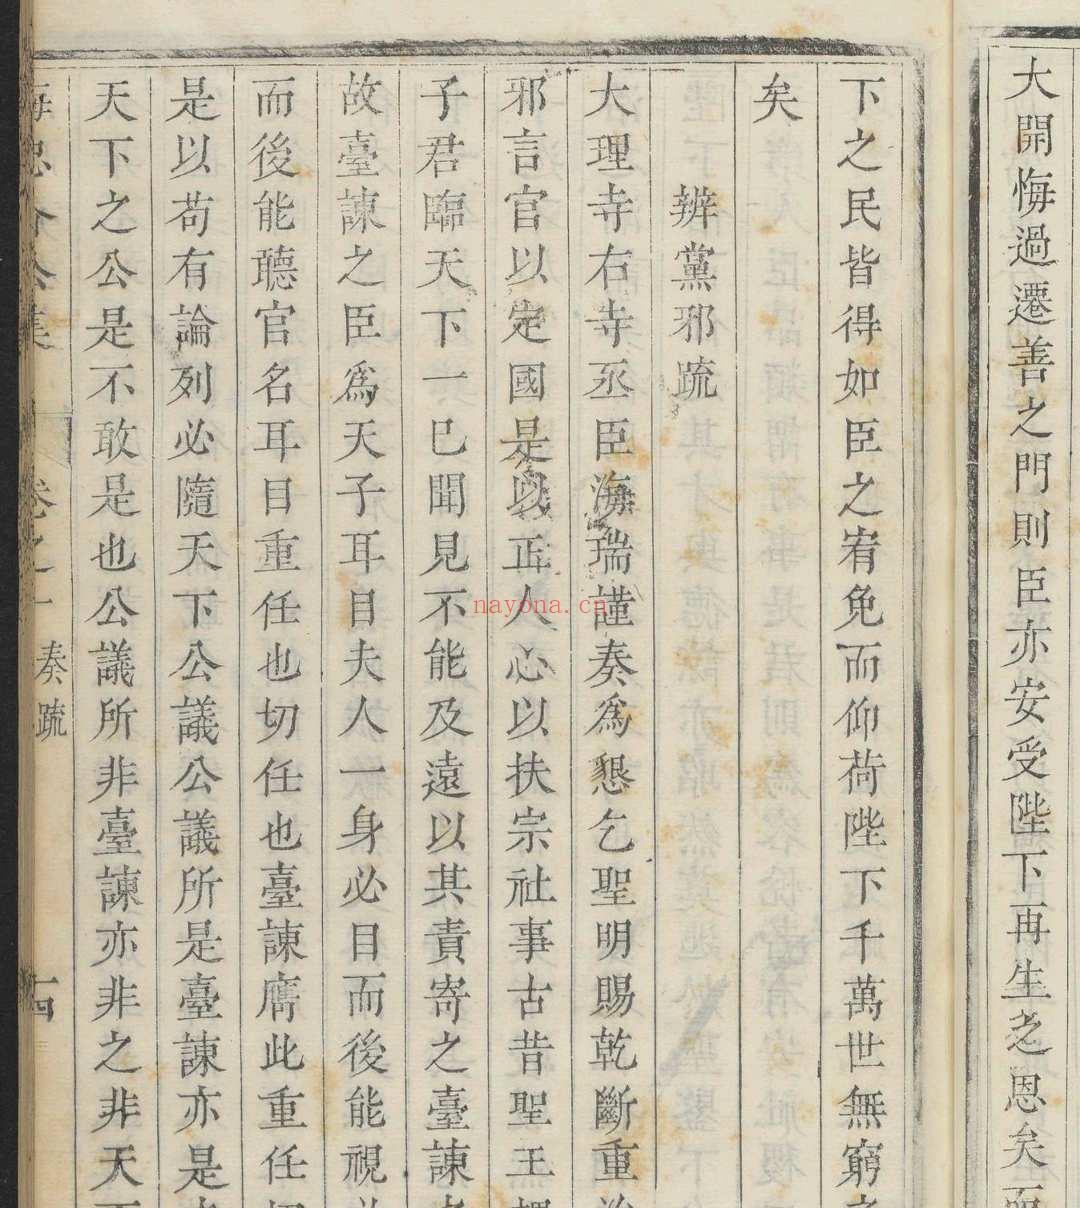 大開悔過遷善之門則臣亦安受陛下再生之恩矣而
下之民皆得如臣之宥免而仰荷陛下千萬世無窮之
矣
辨黨邪疏
大理寺右寺丞臣海瑞謹奏爲懇乞聖明賜乾斷重治
邪言官以定國是以正人心以扶宗社事古昔聖王
子君臨天下一巳聞見不能及遠以其責寄之臺諫
故臺諫之臣爲天子耳目夫人一身必目而後能視
而後能聽官名耳目重任也切任也臺諫膺此重任
是以苟有論列必隨天下公議公議所是臺諫亦是
天下之公是不敢是也公議所非臺諫亦非之非天下
海忠介公集 卷之一 奏疏
nayona.cn